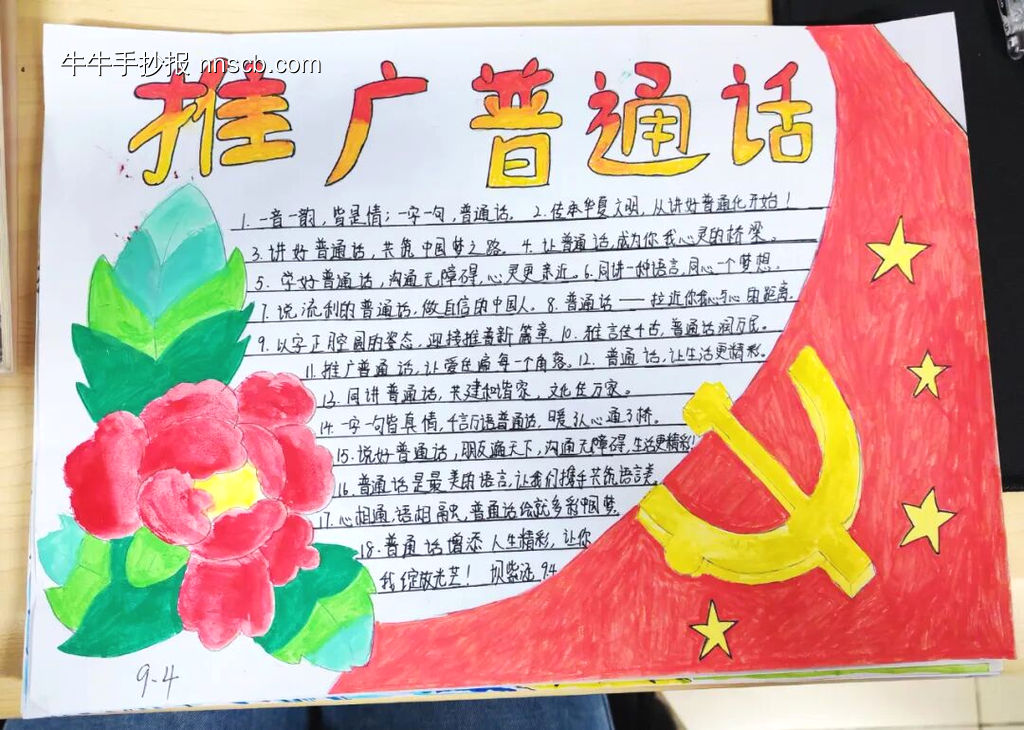 牛牛手抄报 nnscb.com
推广普通话
1. 一音一韵，皆是情；一字一句，普通话。 2. 传承华夏文明，从讲好普通化开始！
3. 讲好普通话，共筑中国梦之路。 4. 让普通话，成为你我心灵的桥梁。
5. 学好普通话，沟通无障碍，心灵更亲近。 6. 同讲一种语言，同心一个梦想。
7. 说流利的普通话，做自信的中国人。 8. 普通话——拉近你我心与心的距离。
9. 以字正腔圆的姿态，迎接推普新篇章。 10. 雅言传千古，普通话润万民。
11. 推广普通话，让爱传遍每一个角落。 12. 普通话，让生活更精彩。
13. 同讲普通话，共建和谐家，文化传万家。
14. 一字一句皆真情，千言万语普通话，暖人心通了桥。
15. 说好普通话，朋友遍天下，沟通无障碍，生活更精彩！
16. 普通话是最美的语言，让我们携手共筑语言美。
17. 心相通，语相融，普通话绘就多彩中国梦
18. 普通话增添人生精彩，让你
我绽放光芒！ 9.4
9-4